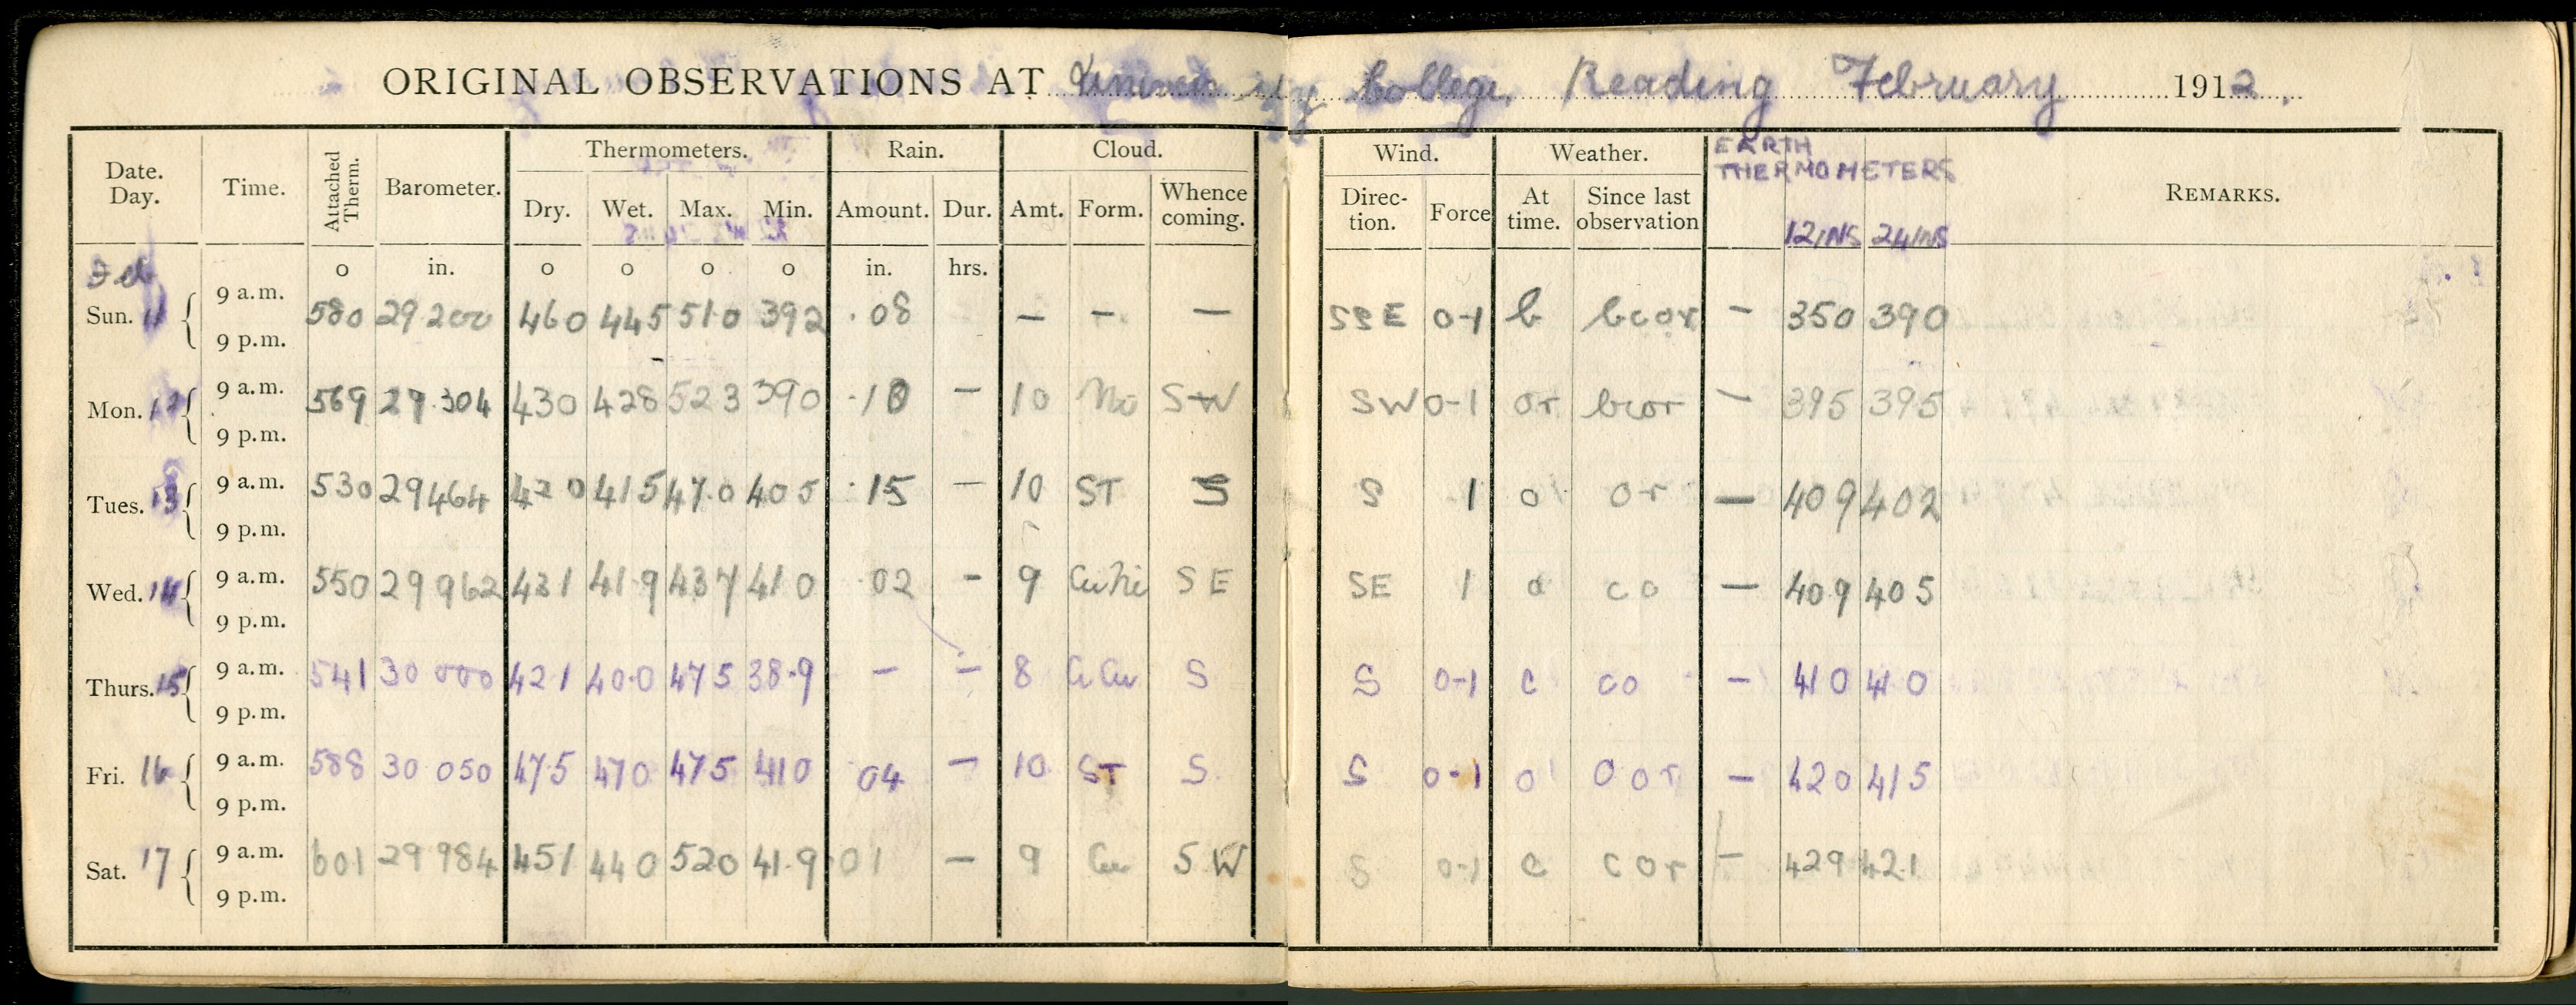 ORIGINAL OBSERVATIONS AT University College, Reading February 1912.
Date. Day. Time. Attached Therm. Barometer. Thermometers. Dry. Wet. Max. Min. Rain. Amount. Dur. Cloud. Amt. Form. Whence coming. Wind. Direc- tion. Force Weather. At time. Since last observation EARTH THERMOMETERS 12 INS 24 INS REMARKS.
Feb o in. o o o o in. hrs.
Sun. 11 9 a.m. 580 29.200 460 445 510 392 .08 — — — SSE 0-1 b bcor — 350 390
9 p.m.
Mon. 12 9 a.m. 569 29.304 430 428 523 390 .10 — 10 SW SW 0-1 or bcor — 395 395
9 p.m.
Tues. 13 9 a.m. 530 29464 420 415 47.0 405 .15 — 10 ST S S 1 o or — 409 402
9 p.m.
Wed. 14 9 a.m. 550 29 962 431 41.9 437 410 02 — 9 CuNi SE SE 1 co — 409 405
9 p.m.
Thurs. 15 9 a.m. 541 30 000 421 40.0 475 38.9 — — 8 S S 0-1 c co — 410 410
9 p.m.
Fri. 16 9 a.m. 588 30 050 47.5 470 475 410 04 — 10 ST S S 0-1 o oor — 420 415
9 p.m.
Sat. 17 9 a.m. 601 29 984 451 440 520 41.9 01 — 9 Cu SW S 0-1 c cor — 429 421
9 p.m.